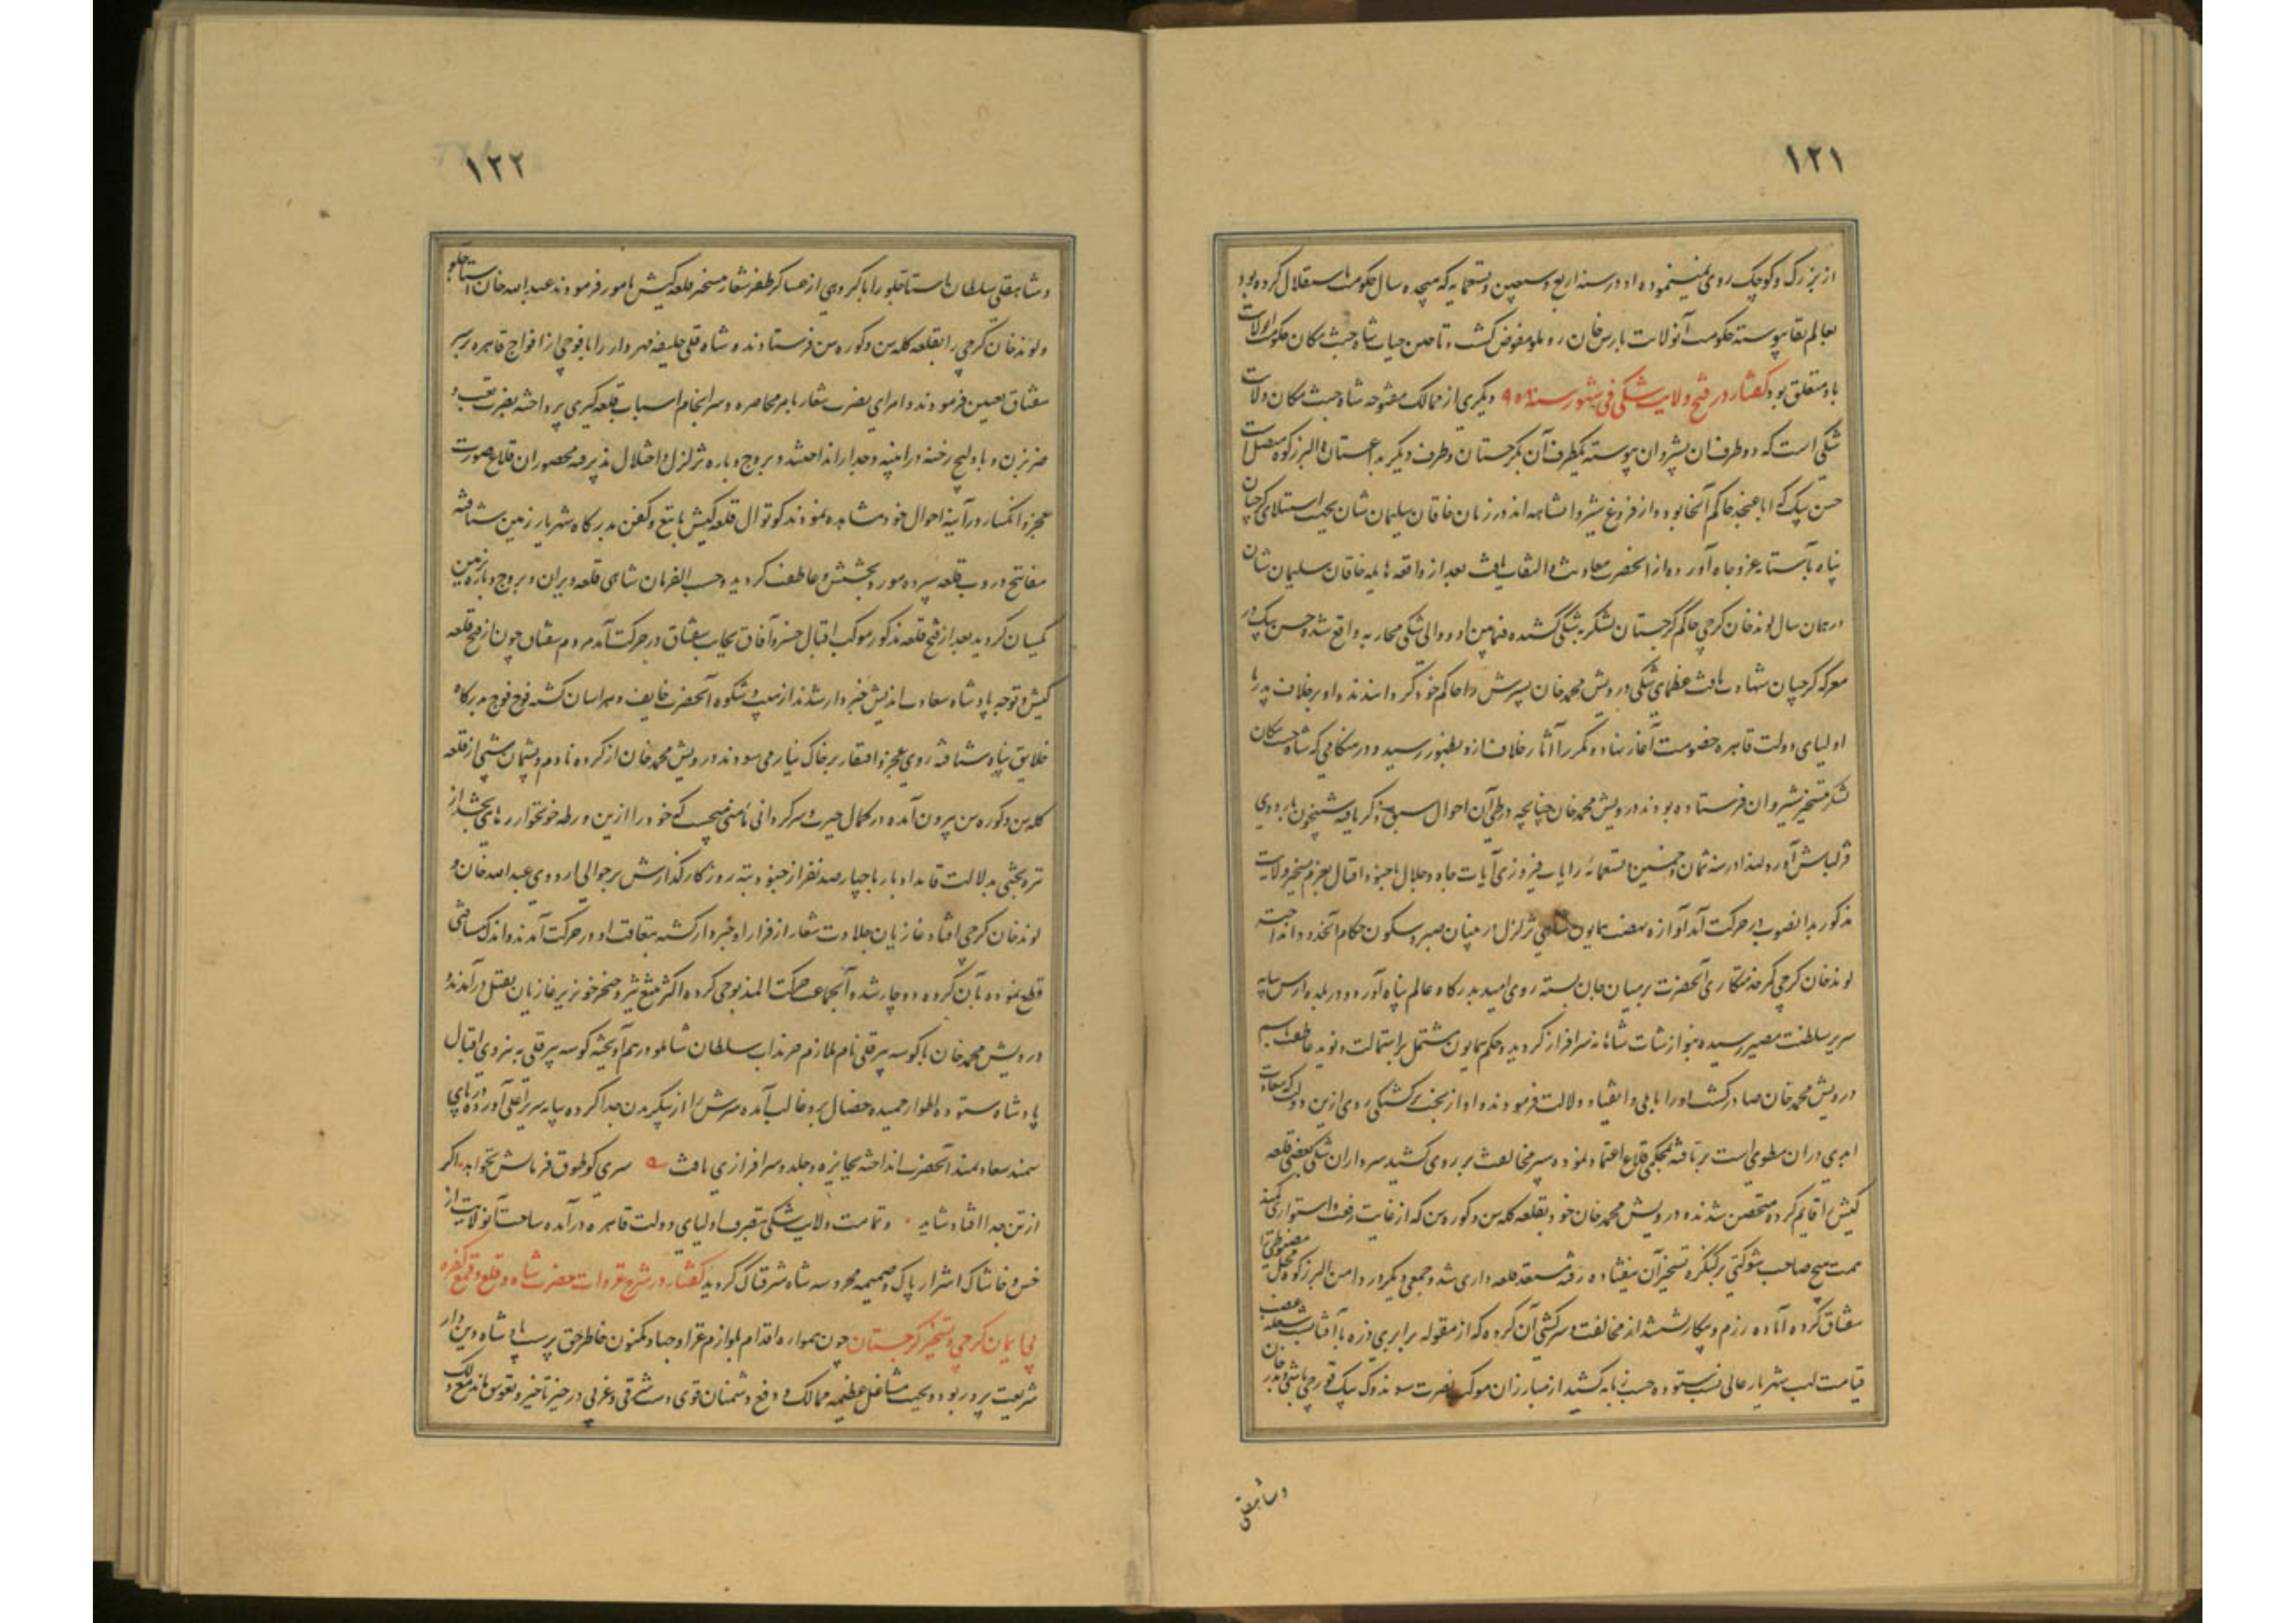 ۱۲۱
از بزرگ و کوچک روی نمینموده او در سنه اربع و سبعین و تسعمایه که هیجده سال حکومت باستقلال کرده بود
بعالم بقا پیوسته حکومت آنولایت بارس خان روملو مفوض گشت و تا حین حیات شاه جنت مکان حکومت آنولایت
باو متعلق بود گفتار در فتح ولایت شکی فی شهور سنه دیگری از ممالک مفتوحه شاه جنت مکان ولایت
شکی است که دو طرف آن بشیروان پیوسته یکطرف آن بگرجستان و طرف دیگر بداغستان و البرز کوه متصل است
حسن بیک که ابا عن جد حاکم آنجا بود و از فروغ شیروانشاهه اند در زمان خاقان سلیمان شان بجهت استیلای گرجیان
پناه بآستانه عز و جاه آورده از آنحضرت معاونت و التفات یافت بعد از واقعه هایله خاقان سلیمان شان
در همان سال لوند خان گرجی حاکم گرجستان لشکر به شکی کشیده فیمابین او و والی شکی محاربه واقع شده حسن بیک در
معرکه گرجیان شهادت یافت عظمای شکی درویش محمد خان پسرش را حاکم خود گردانیدند و او برخلاف پدر با
اولیای دولت قاهره خصومت آغاز نهاد و مکررا آثار خلاف ازو بظهور رسید و در هنگامی که شاه جنت مکان
لشکر بتسخیر شیروان فرستاده بودند درویش محمد خان چنانچه در طی آن احوال سبق ذکر یافته شبیخون بر اردوی
قزلباش آورد لهذا در سنه ثمان و خمسین و تسعمائه رایات فیروزی آیات جاه و جلال با جنود اقبال بعزم تسخیر ولایت
مذکور بدانصوب در حرکت آمد آوازه نهضت همایون شاهی تزلزل در بنیان صبر و سکون حکام آنحدود انداخت
لوند خان گرجی کمر خدمتکاری آنحضرت بر میان جان بسته روی امید بدرگاه عالم پناه آورد و در بلده ارس بپایه
سریر سلطنت مصیر رسیده بنوازشات شاهانه سرافراز گردید و حکم همایون مشتمل بر استمالت و نوید عاطفت باسم
درویش محمد خان صادر گشت او را بایلی و انقیاد دلالت فرمودند و او از بخت برگشتگی روی ازین دولت که سعادت
ابدی در آن مطوی است بر تافته بمحکمی قلاع اعتماد نموده سپر مخالفت بر روی کشید سرداران شکی بعضی قلعه
کیش را قایم کرده متحصن شدند و درویش محمد خان خود بقلعه کله سن و کوره سن که از غایت رفعت و استواری کمند
همت هیچ صاحب شوکتی بر کنگره تسخیر آن نیفتاده رفته مستعد قلعه داری شد و جمعی دیگر در دامن البرز کوه محل مضبوطی را
سقناق کرده آماده رزم و پیکار شدند از مخالفت و سرکشی آن گروه که از مقوله برابری ذره با آفتاب است شعله غضب
قیامت لهب شهریار عالی نسب ستوده حسب زبانه کشید از مبارزان موکب نصرت سوندوک بیک قورچی باشی و بدر خان
وشاهقلی
۱۲۲
و شاهقلی سلطان استاجلو را با گروهی از عساکر ظفر شعار بتسخیر قلعه کیش مامور فرمودند عبدالله خان استاجلو
و لوند خان گرجی را بقلعه کله سن و کوره سن فرستادند و شاه قلی خلیفه مهردار را با فوجی از افواج قاهره بر سر
سقناق تعیین فرمودند و امرای نصرت شعار بامر محاصره و سرانجام اسباب قلعه گیری پرداخته بضرب توپ و
ضربزن و بادلیج رخنه در ابنیه و جدار انداختند و بروج و باره تزلزل و اختلال پذیرفته محصوران قلاع صورت
عجز و انکسار در آینه احوال خود مشاهده نمودند کوتوال قلعه کیش با تیغ و کفن بدرگاه شهریار زمین شتافته
مفاتیح دروب قلعه سپرده مورد بخشش و عاطفت گردید و حسب الفرمان شاهی قلعه ویران و بروج و باره زمین
یکسان گردید بعد از فتح قلعه مذکور موکب اقبال خسرو آفاق بجانب سقناق در حرکت آمد مردم سقناق چون از فتح قلعه
کیش و توجه پادشاه سعادت اندیش خبردار شدند از مهابت و شکوه آنحضرت خایف و هراسان گشته فوج فوج بدرگاه
خلایق پناه شتافته روی عجز و افتقار بر خاک نیاز می سودند درویش محمد خان از کرده نادم و پشیمان شبی از قلعه
کله سن و کوره سن بیرون آمده در کمال حیرت و سرگردانی بامنی میجست که خود را ازین ورطه خونخوار رهایی بخشد از
تیره بختی بدلالت قاید ادبار با چهارصد نفر از جنود بته روزگار گذارش بر حوالی اردوی عبدالله خان و
لوند خان گرجی افتاد غازیان جلادت شعار از فرار او خبردار گشته بتعاقب او در حرکت آمدند و اندک مسافتی
قطع نموده بآن گروه دوچار شد و آنجماعت حرکت المذبوحی کرده اکثر بتیغ تیز و خنجر خونریز غازیان بقتل درآمدند و
درویش محمد خان با کوسه پیرقلی نام ملازم چرنداب سلطان شاملو درهم آویخته کوسه پیرقلی به نیروی اقبال
پادشاه ستوده اطوار حمیده خصال برو غالب آمده سرش را از پیکر بدن جدا کرده بپایه سریر اعلی آورد و در پای
سمند سعادتمند آنحضرت انداخته بجایزه و جلدو سرافرازی یافت سری کو طوق فرمانش نخواهد اگر
از تن جدا افتاد شاید و تمامت ولایت شکی بتصرف اولیای دولت قاهره درآمده ساحت آنولایت از
خس و خاشاک اشرار پاک و ضمیمه محروسه شاه شرقناک گردید گفتار در شرح غزوات حضرت شاه و قلع و قمع کفره
بی ایمان گرجی و تسخیر گرجستان چون همواره اقدام بلوازم غزا و جهاد مکنون خاطر حق پرست پادشاه دین دار
شریعت پرور بود و بجهت مشاغل عظیمه ممالک و دفع دشمنان قوی دست شرقی و غربی در حیز تاخیر و تعویق مانده